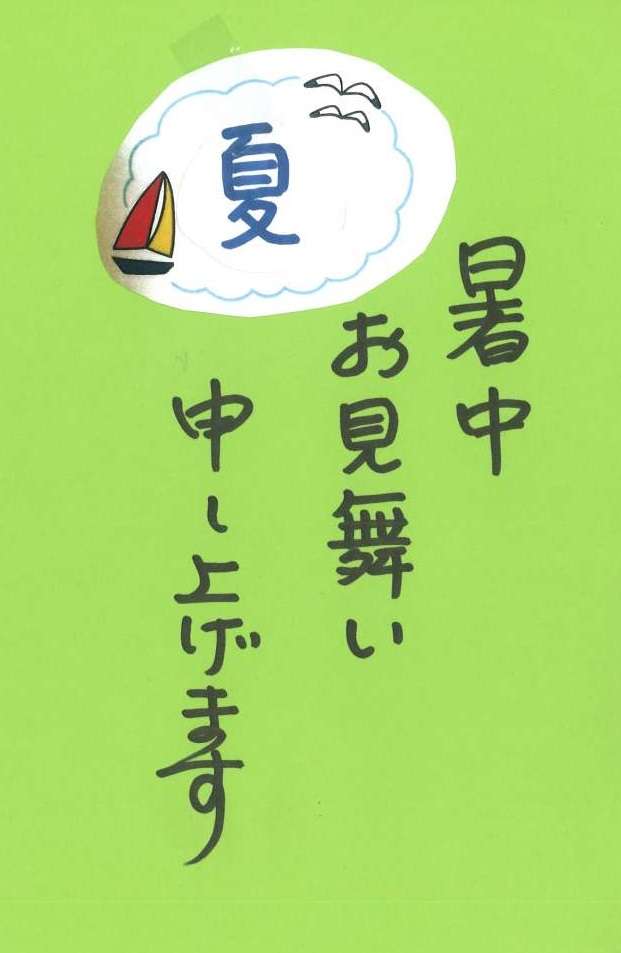 夏
暑中
お見舞い
申し上げます